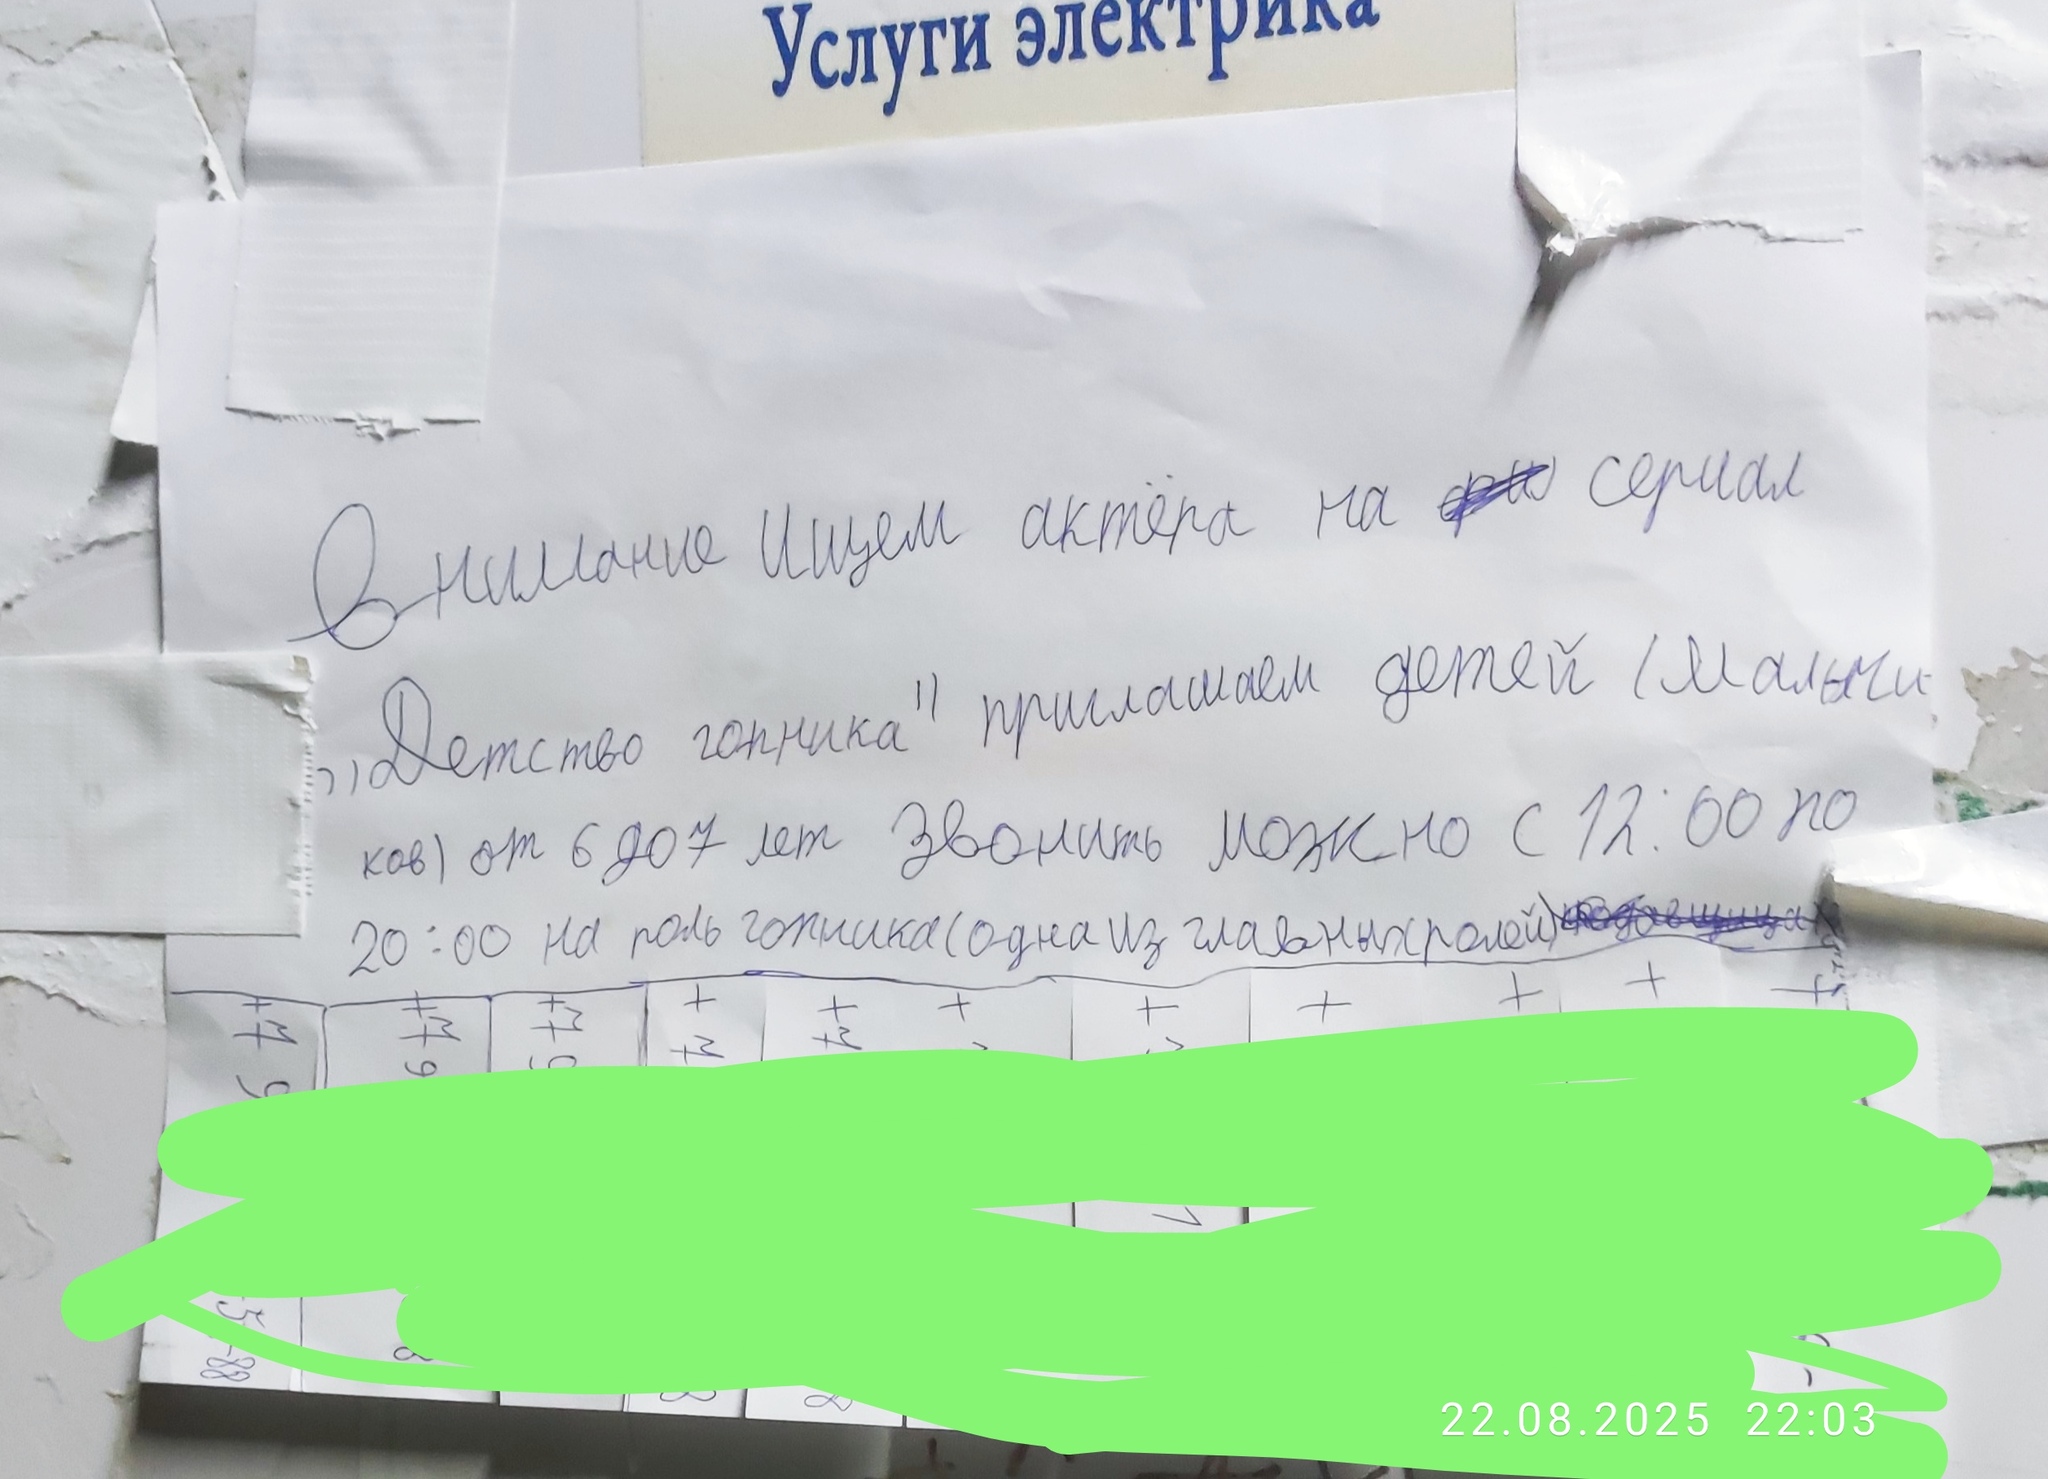 Услуги электрика
Внимание Ищем актёра на сериал
,,Детство гопника" приглашаем детей (Мальчи-
ков) от 6 до 7 лет Звонить можно с 12:00 по
20:00 на роль гопника (одна из главных ролей)
+7 9
+7 9
+7 9
+7
+7
+
+
+
+
+
+
5-88
22.08.2025 22:03